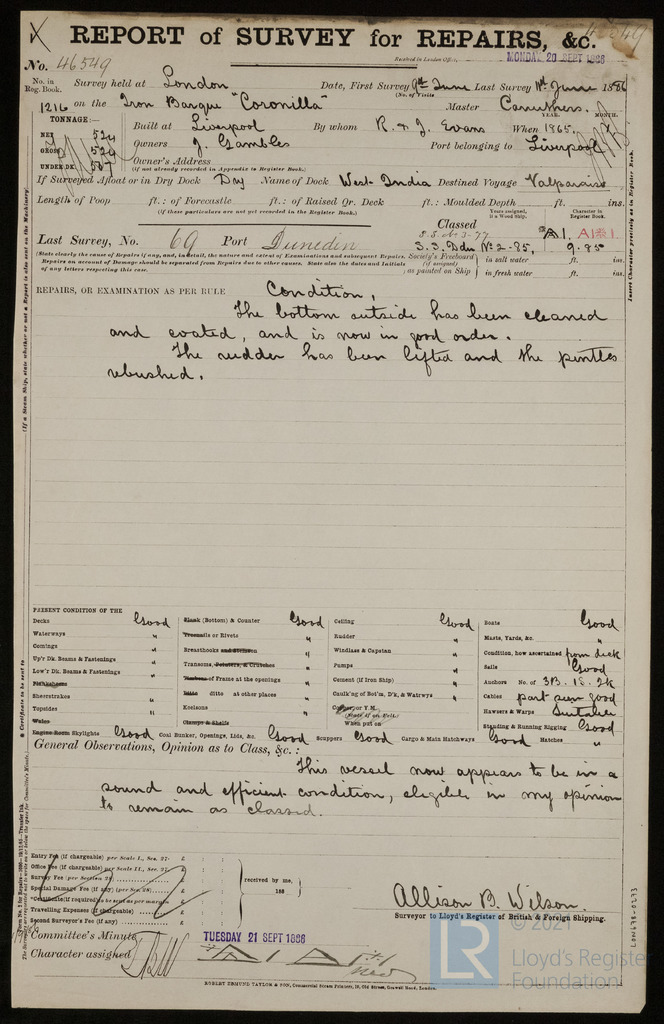 REPORT of SURVEY for REPAIRS, &c.
No. 46549
Received in London Office,
MONDAY 20 SEPT 1886
No. in Reg. Book.
Survey held at London
Date, First Survey 9th June Last Survey 11th June 1886
(No. of Visits
1216 on the Iron Barque "Coronilla" Master Carruthers
TONNAGE:— Built at Liverpool By whom R. & J. Evans When 1865.
YEAR. MONTH.
NET 524
GROSS 529
UNDER DK. 507
Owners J. Gambles Port belonging to Liverpool
Owner's Address
(If not already recorded in Appendix to Register Book.)
If Surveyed Afloat or in Dry Dock Dry Name of Dock West India Destined Voyage Valparaiso
Length of Poop ft.: of Forecastle ft.: of Raised Qr. Deck ft.: Moulded Depth ft. ins.
(If these particulars are not yet recorded in the Register Book.)
Classed
Years assigned, if a Wood Ship.
Character in Register Book.
Last Survey, No. 69 Port Dunedin
S.S. No. 3-77
A1. A1
S.S. Ddn No 2-85, 9.85
(State clearly the cause of Repairs if any, and, in detail, the nature and extent of Examinations and subsequent Repairs. Repairs on account of Damage should be separated from Repairs due to other causes. State also the dates and Initials of any letters respecting this case.
Society's Freeboard (if assigned) as painted on Ship
in salt water ft. ins.
in fresh water ft. ins.
REPAIRS, OR EXAMINATION AS PER RULE Condition,
The bottom outside has been cleaned
and coated, and is now in good order.
The rudder has been lifted and the pintles
rebushed.
PRESENT CONDITION OF THE
Decks Good
Waterways "
Comings "
Up'r Dk. Beams & Fastenings "
Low'r Dk. Beams & Fastenings "
Sheerstrakes "
Topsides "
Wales
Engine Room Skylights Good
Plank (Bottom) & Counter Good
Treenails or Rivets "
Breasthooks and Stemson "
Transoms, Pointers, & Crutches "
Timbers of Frame at the openings "
Ditto ditto at other places "
Keelsons "
Clamps & Shelfs
Coal Bunker, Openings, Lids, &c. Good
Ceiling Good
Rudder "
Windlass & Capstan "
Pumps "
Cement (if Iron Ship) "
Caulk'ng of Bot'm, D'k, & Watrwys "
Copper, or Y.M.
When put on
Scuppers Good
Cargo & Main Hatchways Good
Boats Good
Masts, Yards, &c. "
Condition, how ascertained from deck
Sails Good
Anchors No. of 3B. 1S. 2K
Cables part seen good
Hawsers & Warps Suitable
Standing & Running Rigging Good
Hatches "
General Observations, Opinion as to Class, &c.:
This vessel now appears to be in a
sound and efficient condition, eligible in my opinion
to remain as classed.
Entry Fee (if chargeable) per Scale I., Sec. 27. £ : :
Office Fee (if chargeable) per Scale II., Sec. 27. £ : :
Survey Fee (per Section 28) £ : :
Special Damage Fee (if any) (per Sec. 28) £ : :
Travelling Expenses (if chargeable) £ : :
Second Surveyor's Fee (if any) £ : :
received by me,
188
Allison B. Wilson.
Surveyor to Lloyd's Register of British & Foreign Shipping.
Committee's Minute TUESDAY 21 SEPT 1886
Character assigned A1
ROBERT EDMUND TAYLOR & SON, Commercial Steam Printers, 19, Old Street, Goswell Road, London.
LON678-0273
LR
© 2021
Lloyd's Register
Foundation